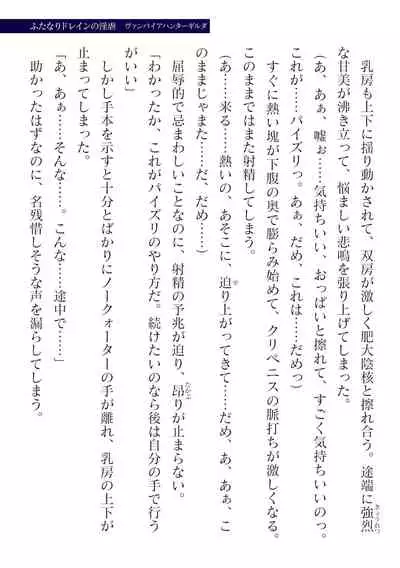 ふたなりドレインの淫虐　ヴァンパイアハンターギルダ
　乳房も上下に揺り動かされて、双房が激しく肥大陰核と擦れ合う。途端に強烈
な甘美が沸き立って、悩ましい悲鳴を張り上げてしまった。
（あ、あぁ、嘘ぉ……気持ちいい、おっぱいと擦れて、すごく気持ちいいのっ。
これが……パイズリっ。あぁ、だめ、これは……だめっ）
　すぐに熱い塊が下腹の奥で膨らみ始めて、クリペニスの脈打ちが激しくなる。
このままではまた射精してしまう。
（あ……来る……熱いの、あそこに、迫り上がってきて……だめ、あ、あぁ、こ
のままじゃまた……だ、だめ……）
　屈辱的で忌まわしいことなのに、射精の予兆が迫り、昂りが止まらない。
「わかったか、これがパイズリのやり方だ。続けたいのなら後は自分の手で行う
がいい」
　しかし手本を示すと十分とばかりにノークォーターの手が離れ、乳房の上下が
止まってしまった。
「あ、あぁ……そんな……。こんな……途中で……」
　助かったはずなのに、名残惜しそうな声を漏らしてしまう。